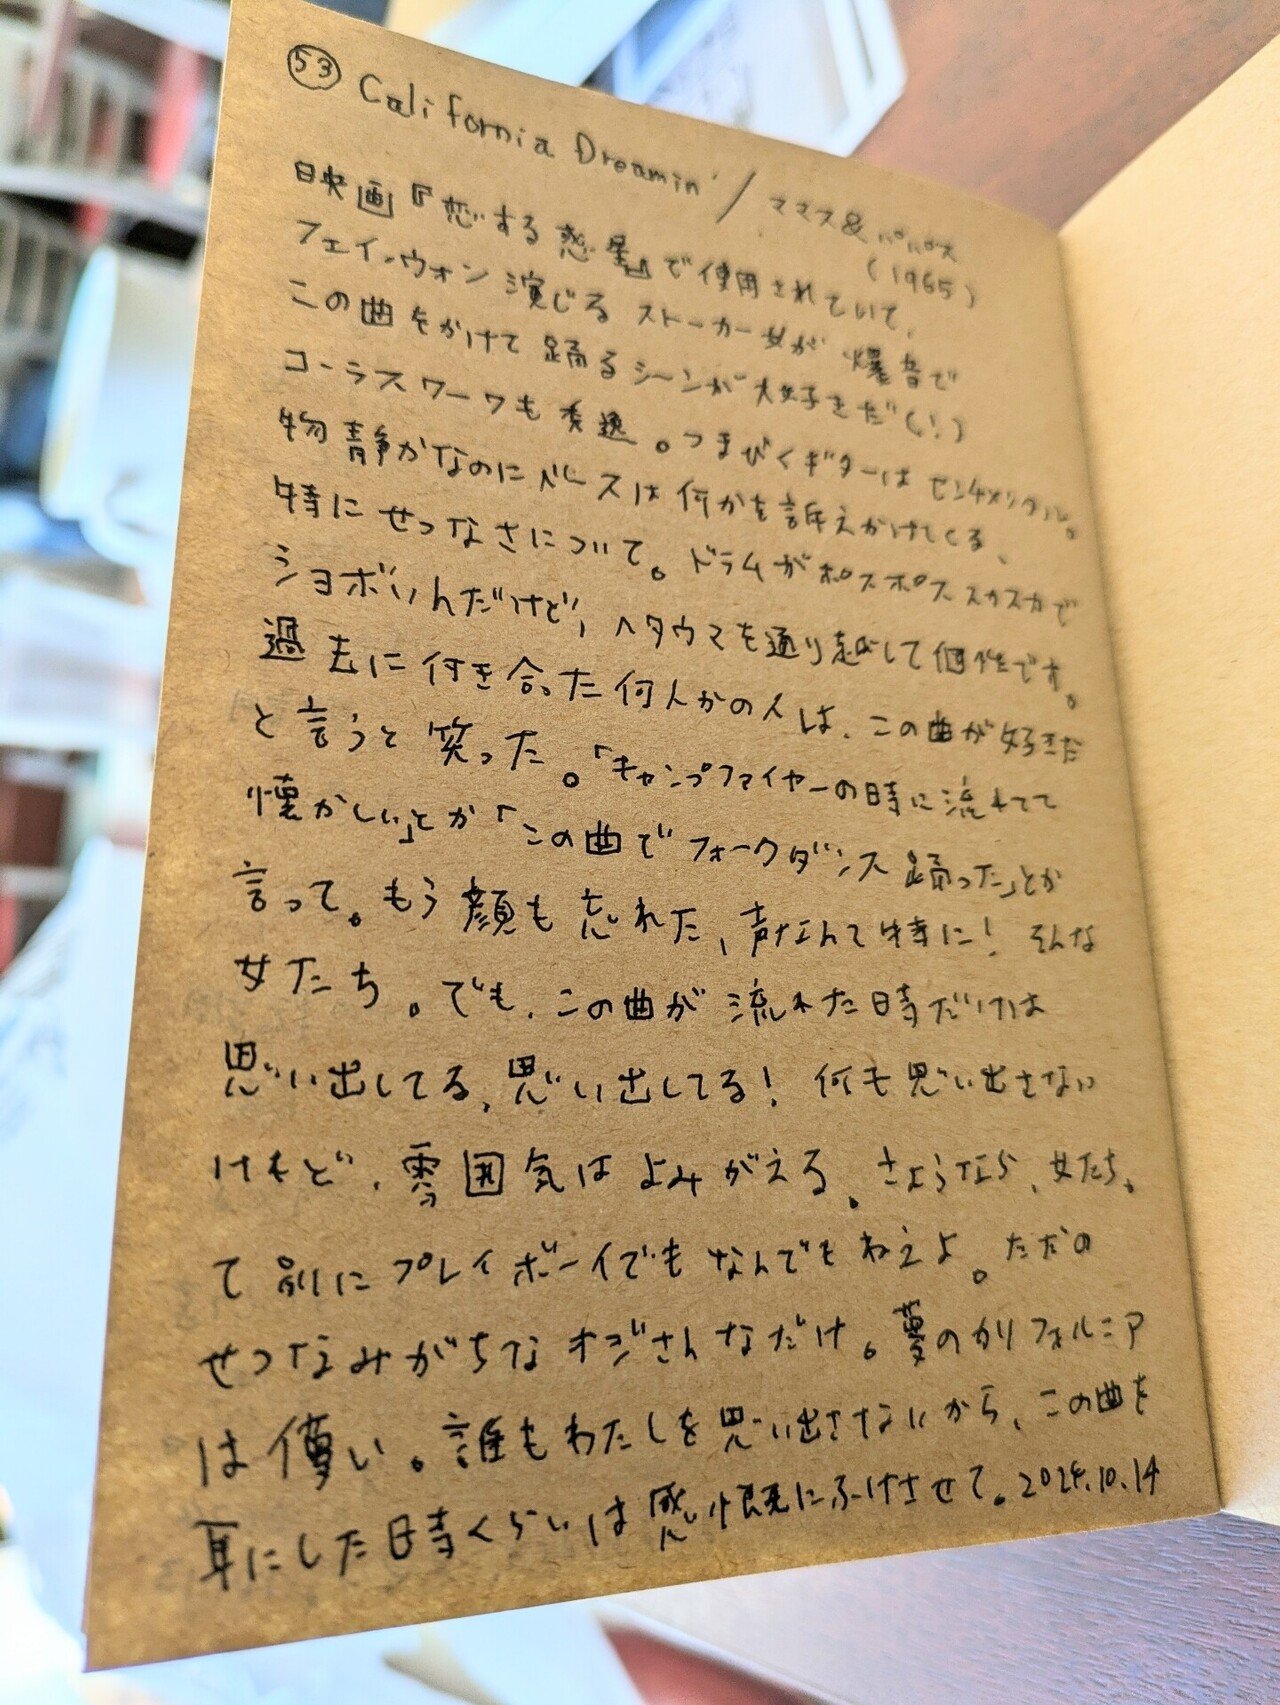 53 California Dreamin' / ママス&パパス
(1965)
映画『恋する惑星』で使用されていて、
フェイ・ウォン演じるストーカー女が爆音で
この曲をかけて踊るシーンが大好きだ(!)
コーラスワークも秀逸。つまびくギターはセンチメンタル。
物静かなのにベースは何かを訴えかけてくる、
特にせつなさについて。ドラムがポスポススカスカで
ショボいんだけど、ヘタウマを通り越して個性です。
過去に付き合った何人かの人は、この曲が好きだ
と言うと笑った。「キャンプファイヤーの時に流れてて
懐かしい」とか「この曲でフォークダンス踊った」とか
言って。もう顔も忘れた、声なんて特に!そんな
女たち。でも、この曲が流れた時だけは
思い出してる、思い出してる!何も思い出さない
けれど、雰囲気はよみがえる。さようなら、女たち。
て別にプレイボーイでもなんでもねえよ。ただの
せつなみがちなオジさんなだけ。夢のカリフォルニア
は儚い。誰もわたしを思い出さないから、この曲を
耳にした時くらいは感慨にふけさせて。2024.10.14